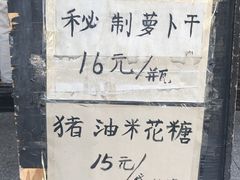 秘制萝卜干
16元/瓶
猪油米花糖
15元/